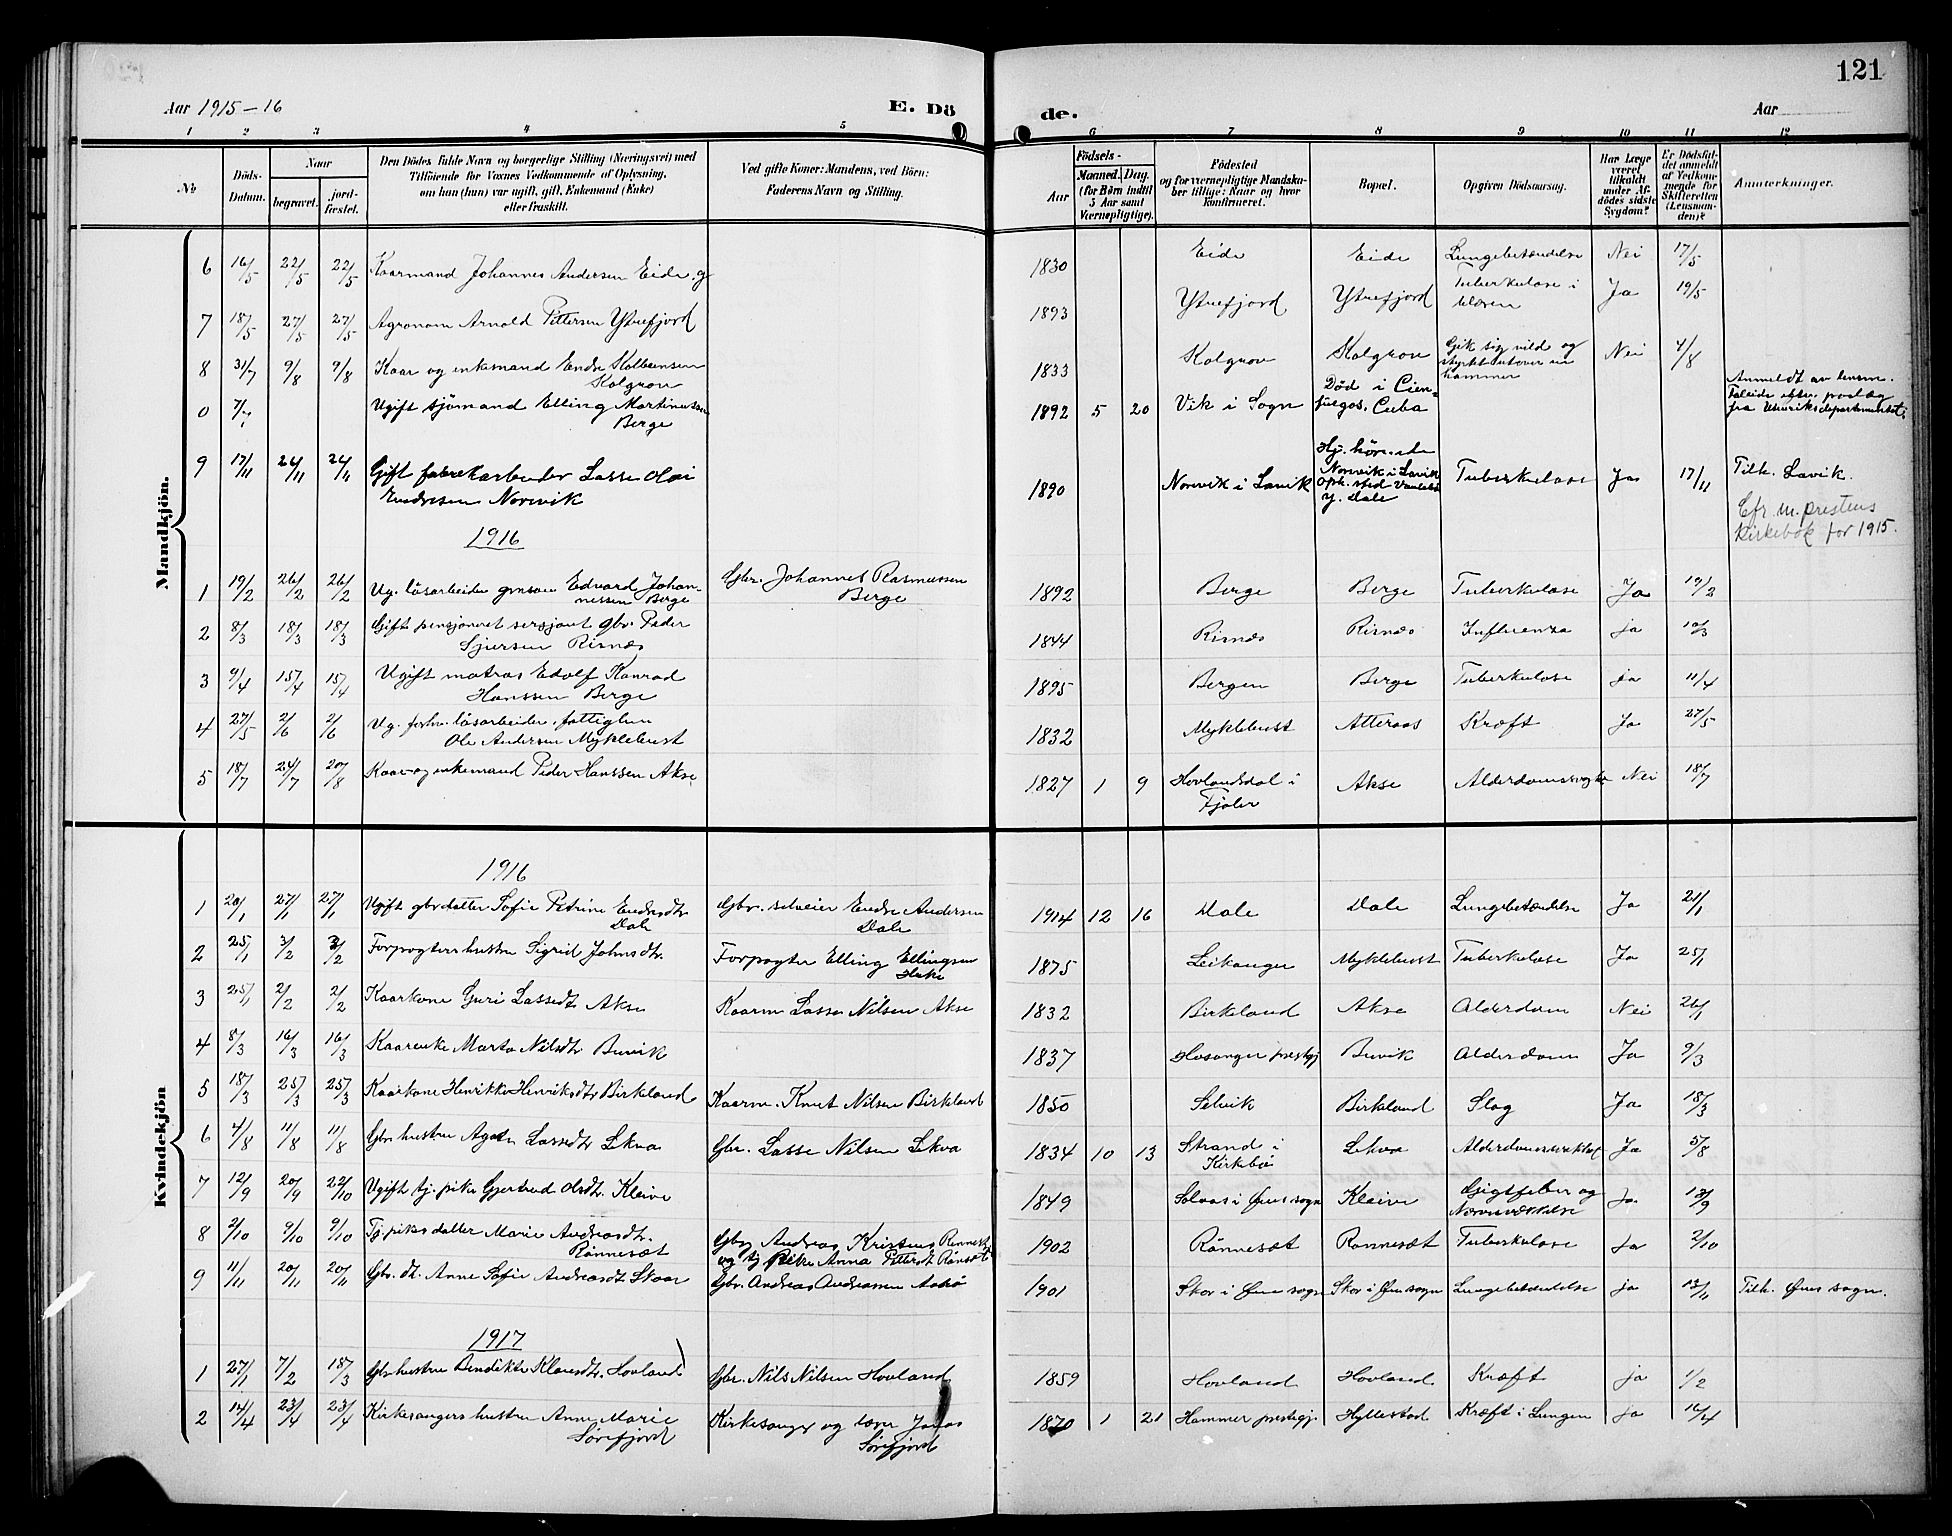 121
Aar 1915-16
E. Dö
de.
Aar
1 2 3 4 5 6 7 8 9 10 11 12
No
Döds-Datum.
Naar
begravet.
jord-fæstet.
Den Dödes fulde Navn og borgerlige Stilling (Næringsvei) med
Tilföiende for Voxnes Vedkommende af Oplysning,
om han (hun) var ugift, gift, Enkemand (Enke)
eller fraskilt.
Ved gifte Koner: Mandens, ved Börn:
Faderens Navn og Stilling.
Aar
Födsels-
Maaned. Dag.
(for Börn indtil
5 Aar samt
Værnepligtige).
Födested
og for værnepligtige Mandska-
ber tillige: Naar og hvor
Konfirmeret.
Bopæl.
Opgiven Dödsaarsag.
Har Læge
været
tilkaldt
under Af-
dödes sidste
Sygdom?
Er Dödsfal-
det anmeldt
af Vedkom-
mende for
Skifteretten
(Lensman-
den)?
Anmerkninger.
Mandkjön.
6 16/5 22/5 22/5 Kaarmand Johannes Andersen Eide 1830 Eide Eide Lungebetændelse Nei 17/5
7 18/5 27/5 27/5 Agronom Arnold Pettersen Ytrefjord 1893 Ytrefjord Ytrefjord Tuberkulose i Ja 19/5
8 31/7 9/8 9/8 Kaar og enkemand Endre Kolbensen
Kolgrov 1833 Kolgrov Kolgrov Gik sig vild og
hammer Nei 4/8
0 7/7 Ugift sjömand Elling Martinussen
Berge 1892 5 20 Vik i Sogn Död i Cien-
fuegos, Cuba
Anmeldt av lensm.
fra Utenriksdepartementet.
9 17/11 24/11 24/11 Gift fabrikarbeider Lasse Olai
Endresen Norevik 1890 Norevik i Lavik
Norevik i Lavik
Dale Tuberkulose Ja 17/11 Tilh. Lavik.
Cfr. m. prestens
Kirkebok for 1915.
1916
1 19/2 26/2 26/2 Ug. lösarbeider Edvard Johan-
nessen Berge Gbr. Johannes Rasmussen
Berge 1892 Berge Berge Tuberkulose Ja 19/2
2 8/3 18/3 18/3 Gift pensjoneret sersjant gbr. Peder
Sjursen Risnæs 1844 Risnæs Risnæs Influenza ja 10/3
3 9/4 15/4 15/4 Ugift matros Edolf Konrad
Hanssen Berge 1895 Bergen Berge Tuberkulose ja 11/4
4 27/5 2/6 2/6 Ug. forhv. lösarbeider, fattiglem
Ole Andersen Myklebust 1832 Myklebust Atteraas Kræft Ja 27/5
5 18/7 24/7 20/8 Kaar- og enkemand Peder Hanssen Akse 1827 1 9 Hovlandsdal i
Fjaler Akse Nei 18/7
Kvindekjön
1916
1 20/1 27/1 27/1 Ugift gbr datter Sofie Petrine Endresdtr
Dale Gbr. selveier Endre Andersen
Dale 1914 12 16 Dale Dale Lungebetændelse Ja 21/1
2 25/1 3/2 3/2 Forpagters hustru Sigrid Johnsdtr. Forpagter Elling Ellingsen
1875 Leikanger Myklebust Tuberkulose Ja 25/1
3 25/1 2/2 2/2 Kaarkone Guri Lassedtr Akse Kaarm Lasse Nilsen Akse 1832 Birkeland Akse Alderdom Nei 26/1
4 8/3 16/3 16/3 Kaarenke Marta Nilsdtr Buvik 1837 Hosanger prestegj Buvik Alderdom Ja 9/3
5 18/3 25/3 25/3 Kaarkone Henrikke Henriksdtr Birkeland Kaarm. Knut Nilsen Birkeland 1850 Selvik Birkland Slag Ja 18/3
6 4/8 11/8 11/8 Gbr hustru Agate Lassedtr Lekva Gbr. Lasse Nilsen Lekva 1834 10 13 Strand i
Kirkebö Lekva Ja 5/8
7 12/9 20/9 22/10 Ugift tj. pike Gjertrud Olsdtr. Kleive 1849 Solaas i Öens sogn Kleive Gigtfeber og
Ja 13/9
8 2/10 9/10 9/10 Tj. pikes datter Marie Andreasdtr.
Rönneset Gbrs Andreas Kristens Rennest
og tj pike Anna Pettersdt Rönset 1902 Rönnesæt Ronnesæt Tuberkulose Ja 2/10
9 11/11 20/11 20/11 Gbr. dt. Anne Sofie Andreasdt Skaar Gbr. Andreas Andreassen 1901 Skor i Öens sogn Skor i Öens sogn Lungebetændelse ja 13/11 Tilh. Öens sogn.
1917
1 27/1 7/2 18/3 Gbr hustru Bendikte Klausdtr. Hovland Gbr. Nils Nilsen Hovland 1859 Hovland Hovland Kræft ja 1/2
2 14/4 23/4 23/4 Kirkesangers hustru Anne Marie
Sörefjord Kirkesanger og lærer Jonas
Sörefjord 1870 1 21 Hammer prestegj. Hyllestad Kræft i Lungen ja 16/4